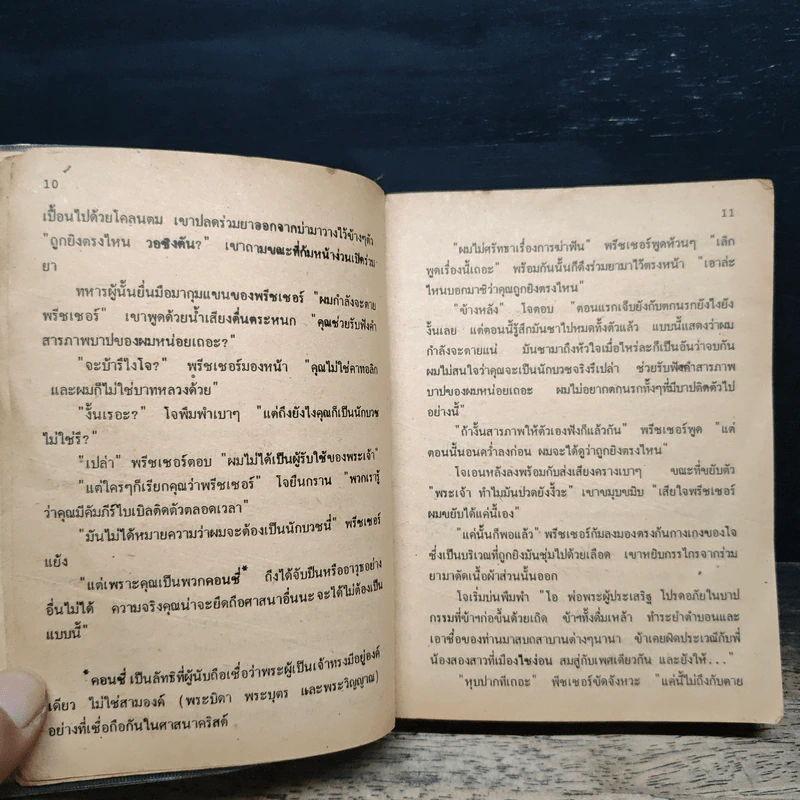 10
เปื้อนไปด้วยโคลนตม เขาปลดร่วมยาออกจากบ่ามาวางไว้ข้างๆตัว
"ถูกยิงตรงไหน วอชิงตัน?" เขาถามขณะที่ก้มหน้าง่วนเปิดร่วม
ยา
ทหารผู้นั้นยื่นมือมากุมแขนของพรีชเชอร์ "ผมกำลังจะตาย
พรีชเชอร์" เขาพูดด้วยน้ำเสียงตื่นตระหนก "คุณช่วยรับฟังคำ
สารภาพบาปของผมหน่อยเถอะ?"
"จะบ้ารึไงโจ?" พรีชเชอร์มองหน้า "คุณไม่ใช่คาทอลิก
และผมก็ไม่ใช่บาทหลวงด้วย"
"งั้นเรอะ?" โจพึมพำเบาๆ "แต่ถึงยังไงคุณก็เป็นนักบวช
ไม่ใช่รึ?"
"เปล่า" พรีชเชอร์ตอบ "ผมไม่ได้เป็นผู้รับใช้ของพระเจ้า"
"แต่ใครๆก็เรียกคุณว่าพรีชเชอร์" โจยืนกราน "พวกเรารู้
ว่าคุณมีคัมภีร์ไบเบิลติดตัวตลอดเวลา"
"มันไม่ได้หมายความว่าผมจะต้องเป็นนักบวชนี่" พรีชเชอร์
แย้ง
"แต่เพราะคุณเป็นพวกคอนชี่* ถึงได้จับปืนหรืออาวุธอย่าง
อื่นไม่ได้ ความจริงคุณน่าจะยึดถือศาสนาอื่นนะ จะได้ไม่ต้องเป็น
แบบนี้"
*คอนชี่ เป็นลัทธิที่ผู้นับถือเชื่อว่าพระผู้เป็นเจ้าทรงมีอยู่องค์
เดียว ไม่ใช่สามองค์ (พระบิดา พระบุตร และพระวิญญาณ)
อย่างที่เชื่อถือกันในศาสนาคริสต์
11
"ผมไม่ศรัทธาเรื่องการฆ่าฟัน" พรีชเชอร์พูดห้วนๆ "เลิก
พูดเรื่องนี้เถอะ" พร้อมกันนั้นก็ดึงร่วมยามาไว้ตรงหน้า "เอาล่ะ
ไหนบอกมาซิว่าคุณถูกยิงตรงไหน"
"ข้างหลัง" โจตอบ "ตอนแรกเจ็บยังกับตกนรกยังไงยัง
งั้นเลย แต่ตอนนี้รู้สึกมันชาไปหมดทั้งตัวแล้ว แบบนี้แสดงว่าผม
กำลังจะตายแน่ มันชามาถึงหัวใจเมื่อไหร่ละก็เป็นอันว่าจบกัน
ผมไม่สนใจว่าคุณจะเป็นนักบวชจริงรึเปล่า ช่วยรับฟังคำสารภาพ
บาปของผมหน่อยเถอะ ผมไม่อยากตกนรกทั้งๆที่มีบาปติดตัวไป
อย่างนี้"
"ถ้างั้นสารภาพให้ตัวเองฟังก็แล้วกัน" พรีชเชอร์พูด "แต่
ตอนนี้นอนคว่ำลงก่อน ผมจะได้ดูว่าถูกยิงตรงไหน"
โจเอนหลังลงพร้อมกับส่งเสียงครางเบาๆ ขณะที่ขยับตัว
"พระเจ้า ทำไมมันปวดยังงี้วะ" เขาขมุบขมิบ "เสียใจพรีชเชอร์
ผมขยับได้แค่นี้เอง"
"แค่นั้นก็พอแล้ว" พรีชเชอร์ก้มลงมองตรงก้นกางเกงของโจ
ซึ่งเป็นบริเวณที่ถูกยิงมันชุ่มไปด้วยเลือด เขาหยิบกรรไกรจากร่วม
ยามาตัดเนื้อผ้าส่วนนั้นออก
โจเริ่มบ่นพึมพำ "โอ พ่อพระผู้ประเสริฐ โปรดอภัยในบาป
กรรมที่ข้าฯก่อขึ้นด้วยเถิด ข้าฯทั้งดื่มเหล้า ทำระยำตำบอนและ
เอาชื่อของท่านมาสบถสาบานต่างๆนานา ข้าเคยผิดประเวณีกับพี่
น้องสองสาวที่เมืองไซง่อน สมสู่กับเพศเดียวกัน และยังให้..."
"หุบปากทีเถอะ" พีชเชอร์ขัดจังหวะ "แค่นี้ไม่ถึงกับตาย